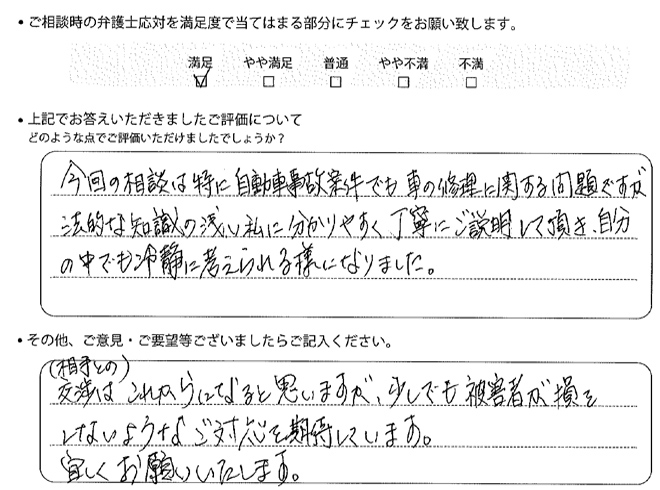 • ご相談時の弁護士応対を満足度で当てはまる部分にチェックをお願い致します。
満足 やや満足 普通 やや不満 不満
• 上記でお答えいただきましたご評価について
どのような点でご評価いただけましたでしょうか？
今回の相談は特に自動車事故案件でも車の修理に関する問題ですが
法的な知識の浅い私に分かりやすく丁寧にご説明して頂き、自分
の中でも冷静に考えられる様になりました。
• その他、ご意見・ご要望等ございましたらご記入ください。
(相手との)
交渉はこれからになると思いますが、少しでも被害者が損を
しないようなご対応を期待しています。
宜しくお願いいたします。